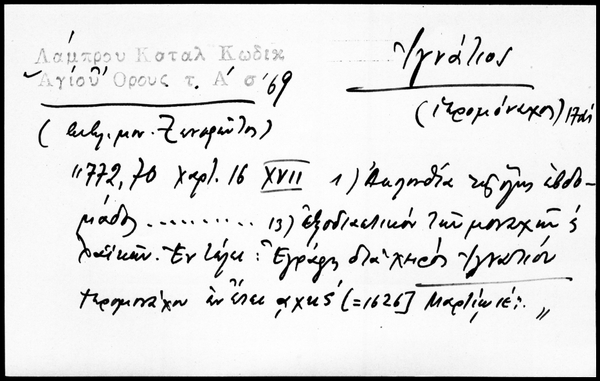 Λάμπρου Καταλ Κωδικ
Ἁγίου Ὄρους τ. Α´ σ´ 69
Ἰγνάτιος
(ἱερομόναχος) 17ος
(βιβλ. μον. Ξενοφῶντος)
"772, 70 χαρτ. 16 XVII 1) Ἀκολουθία τῆς ὅλης ἑβδο-
μάδος .......... 13) Ἐξοδιαστικόν τῶν μοναχῶν ς
λαϊκῶν. Ἐν τέλει: Ἐγράφη διὰ χειρός Ἰγνατίου
ἱερομονάχου ἐν ἔτει ͵αχκς´ (=1626] Μαρτίῳ ιέ:. "